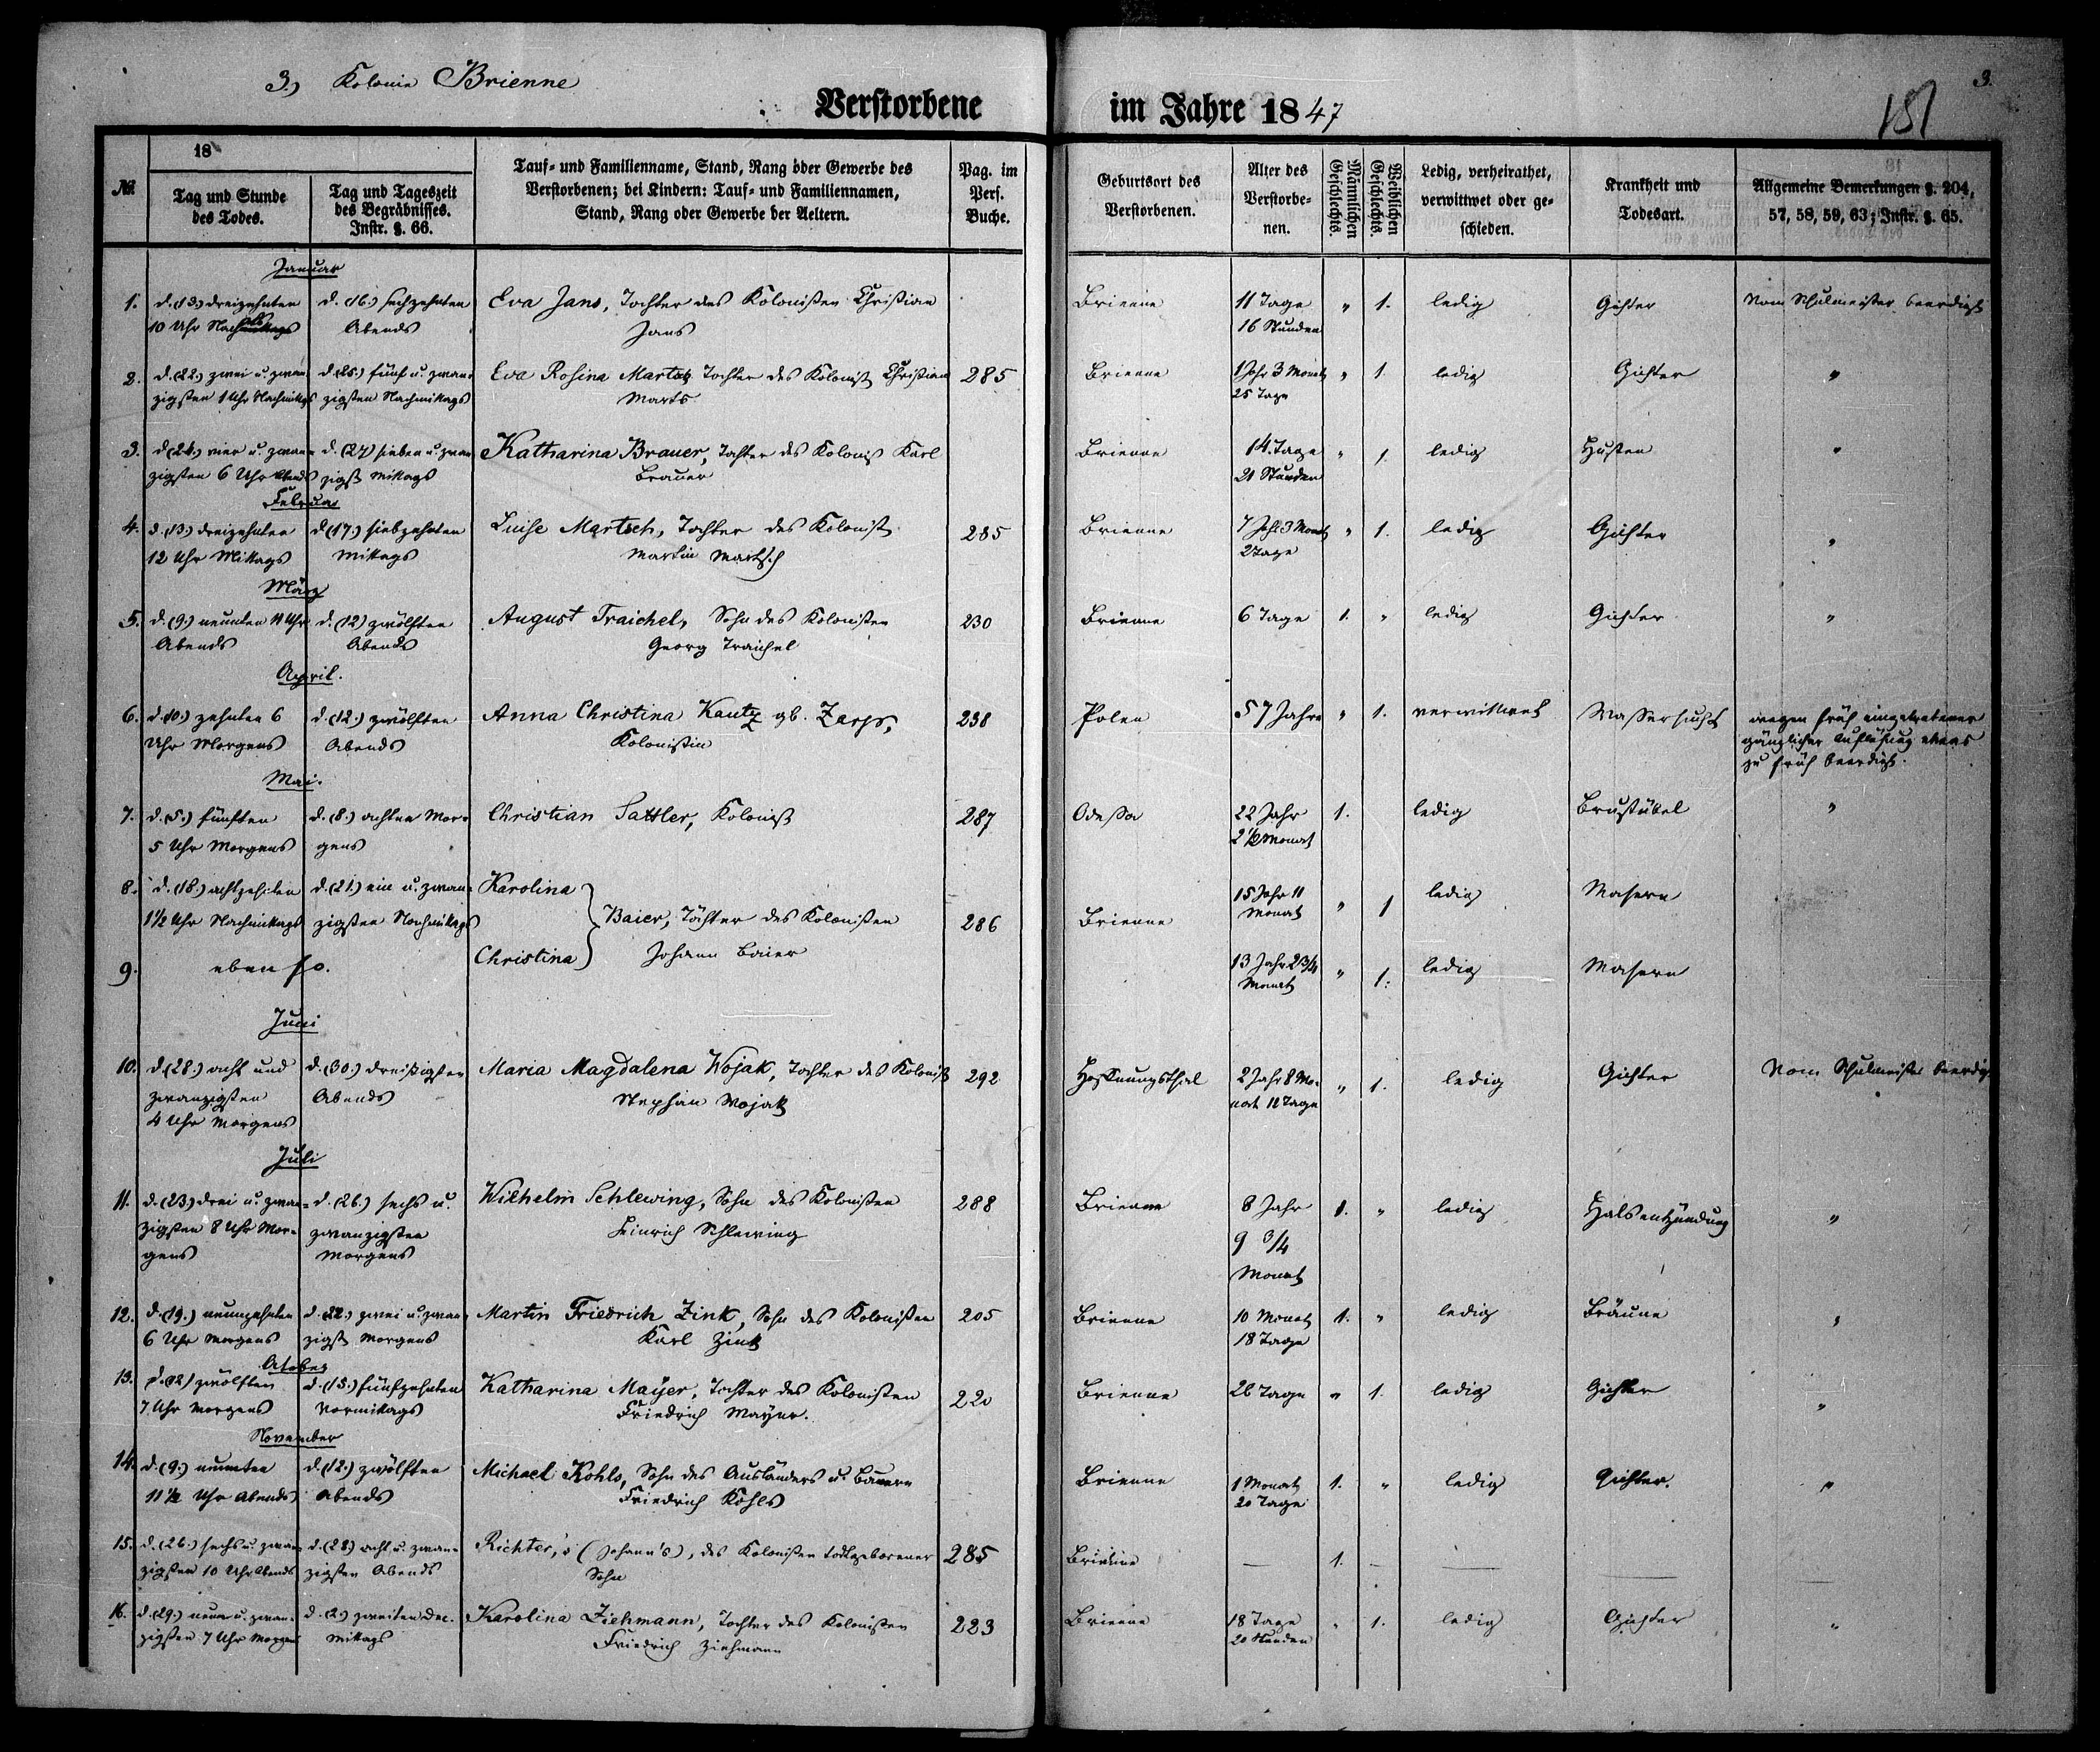 3.) Kolonie Brienne
3.
Verstorbene im Jahre 1847
181
No.
18
Tag und Stunde des Todes.
Tag und Tageszeit des Begräbnisses. Instr. §. 66.
Tauf- und Familienname, Stand, Rang oder Gewerbe des
Verstorbenen; bei Kindern: Tauf- und Familiennamen,
Stand, Rang oder Gewerbe der Aeltern.
Pag. im Pers. Buche.
Geburtsort des Verstorbenen.
Alter des Verstorbenen.
Männlichen Geschlechts.
Weiblichen Geschlechts.
Ledig, verheirathet, verwittwet oder geschieden.
Krankheit und Todesart.
Allgemeine Bemerkungen §. 204, 57, 58, 59, 63; Instr. §. 65.
Januar
1. d. (13.) dreizehnten d. (16.) sechzehnten Eva Jans, Tochter des Kolonisten Christian Brienne 11 Tage " 1. ledig Gichter Vom Schulmeister beerdigt
10 Uhr Abends Jans 16 Stunden
2. d. (22.) zwei u. zwan d. (25.) fünf u. zwan Eva Rosina Marts Tochter des Kolonist Christian 285 Brienne 1 Jahr 3 Monat " 1. ledig Gichter "
zigsten 1 Uhr Nachmittags zigsten Nachmittags Marts 25 Tage
3. d. (24.) vier u. zwan= d. (27) sieben u. zwan Katharina Brauer, Tochter des Kolonist Karl Brienne 14. Tage " 1. ledig Husten "
zigsten 6 Uhr Abends zigst Mittags Brauer 21 Stunden
Februar
4. d. (13.) dreizehnten d. (17.) siebzehnten Luise Martsch, Tochter des Kolonist 285 Brienne 7 Jahr 3 Monat " 1. ledig Gichter "
12 Uhr Mittags Mittags Martin Martsch 2 Tage
März
5. d. (9.) neunten 11 Uhr d. (12) zwölften August Traichel, Sohn des Kolonisten 230 Brienne 6 Tage 1. " ledig Gichter "
Abends Abends Georg Traichel
April.
6. d. (10.) zehnten 6 d. (12.) zwölften Anna Christina Kautz gb. Zarps, 238 Polen 57 Jahre " 1. verwittwet Wassersucht wegen früh eingetretener
Uhr Morgens Abends Kolonistin gänzlicher Auflösung etwas
zu früh beerdigt.
Mai.
7. d. (5.) fünften d. (8.) achten Mor= Christian Sattler, Kolonist 287 Odessa 22 Jahr 1. ledig Brustübel "
5 Uhr Morgens gens 2 1/2 Monat
8. d. (18.) achtzehnten d. (21.) ein u. zwan= Karolina 15 Jahr 11 " 1 ledig Masern
1 1/2 Uhr Nachmittags zigsten Nachmittags Baier, Töchter des Kolonisten 286 Brienne Monat
9. eben so. Christina Johann Baier 13 Jahr 2 3/4 " 1. ledig Masern
Monat
Juni
10. d. (28.) acht und d. (30.) dreißigsten Maria Magdalena Wojak, Tochter des Kolonist 292 Hoffnungsthal 2 Jahr 8 Mo= " 1. ledig Gichter Vom Schulmeister beerdigt
zwanzigsten Abends Stephan Wojak nat 12 Tage
4 Uhr Morgens
Juli
11. d. (23) drei u. zwan= d. (26.) sechs u. Wilhelm Schlewing, Sohn des Kolonisten 288 Brienne 8 Jahr 1. " ledig Halsentzündung "
zigsten 8 Uhr Mor= zwanzigsten Heinrich Schlewing 9 3/4
gens Morgens Monat
12. d. (19.) neunzehnten d. (22.) zwei u. zwan Martin Friedrich Zink, Sohn des Kolonisten 205 Brienne 10 Monat 1. " ledig Bräune "
6 Uhr Morgens zigst Morgens Karl Zink 18 Tage
October
13. d. (12) zwölften d. (15.) fünfzehnten Katharina Mayer, Tochter des Kolonisten 220 Brienne 26 Tage " 1. ledig Gichter "
7 Uhr Morgens Vormittags Friedrich Mayer.
November
14. d. (9.) neunten d. (12.) zwölften Michael Kohls, Sohn des Ausländers u. Bauern Brienne 1 Monat 1. " ledig Gichter. "
11 1/2 Uhr Abends Abends Friedrich Kohls 20 Tage
15. d. (26.) sechs u. zwan= d. (28) acht u. zwan= Richter's (Johann's), des Kolonisten todtgeborener 285 Brienne — 1. — — — —
zigsten 10 Uhr Abends zigsten Abends Sohn
16. d. (29.) neun u. zwan= d. (2.) zweiten Dec. Karolina Ziehmann, Tochter des Kolonisten 223 Brienne 18 Tage " 1. ledig Gichter "
zigsten 7 Uhr Morgens Mittags Friedrich Ziehmann 20 Stunden